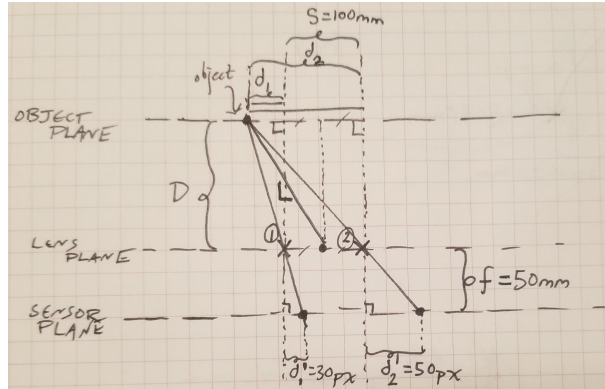 S=100mm
d₂
object
d₁
OBJECT
PLANE
D
L
LENS
PLANE
① ②
f=50mm
SENSOR
PLANE
d₁'=30px
d₂'=50px